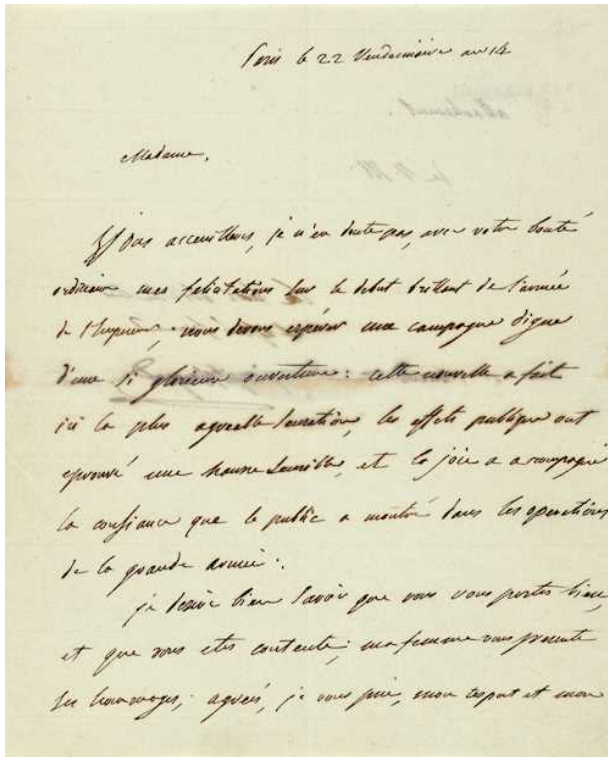 Paris le 22 Vendemiaire an 14
attachement.
Madame,
Vous accueillerez, je n'en doute pas, avec votre bonté
ordinaire mes felicitations sur le debut brillant de l'armée
de l'Empereur; nous devons espérer une campagne digne
d'une si glorieuse ouverture: cette nouvelle a fait
ici la plus agreable sensation, les effets publiques ont
eprouvé une hausse sensible, et la joie a accompagné
la confiance que le public a montré dans les operations
de la grande armée.
je desire bien savoir que vous vous portes bien,
et que vous etes contente; ma femme vous presente
ses hommages; agréés, je vous prie, mon respect et mon